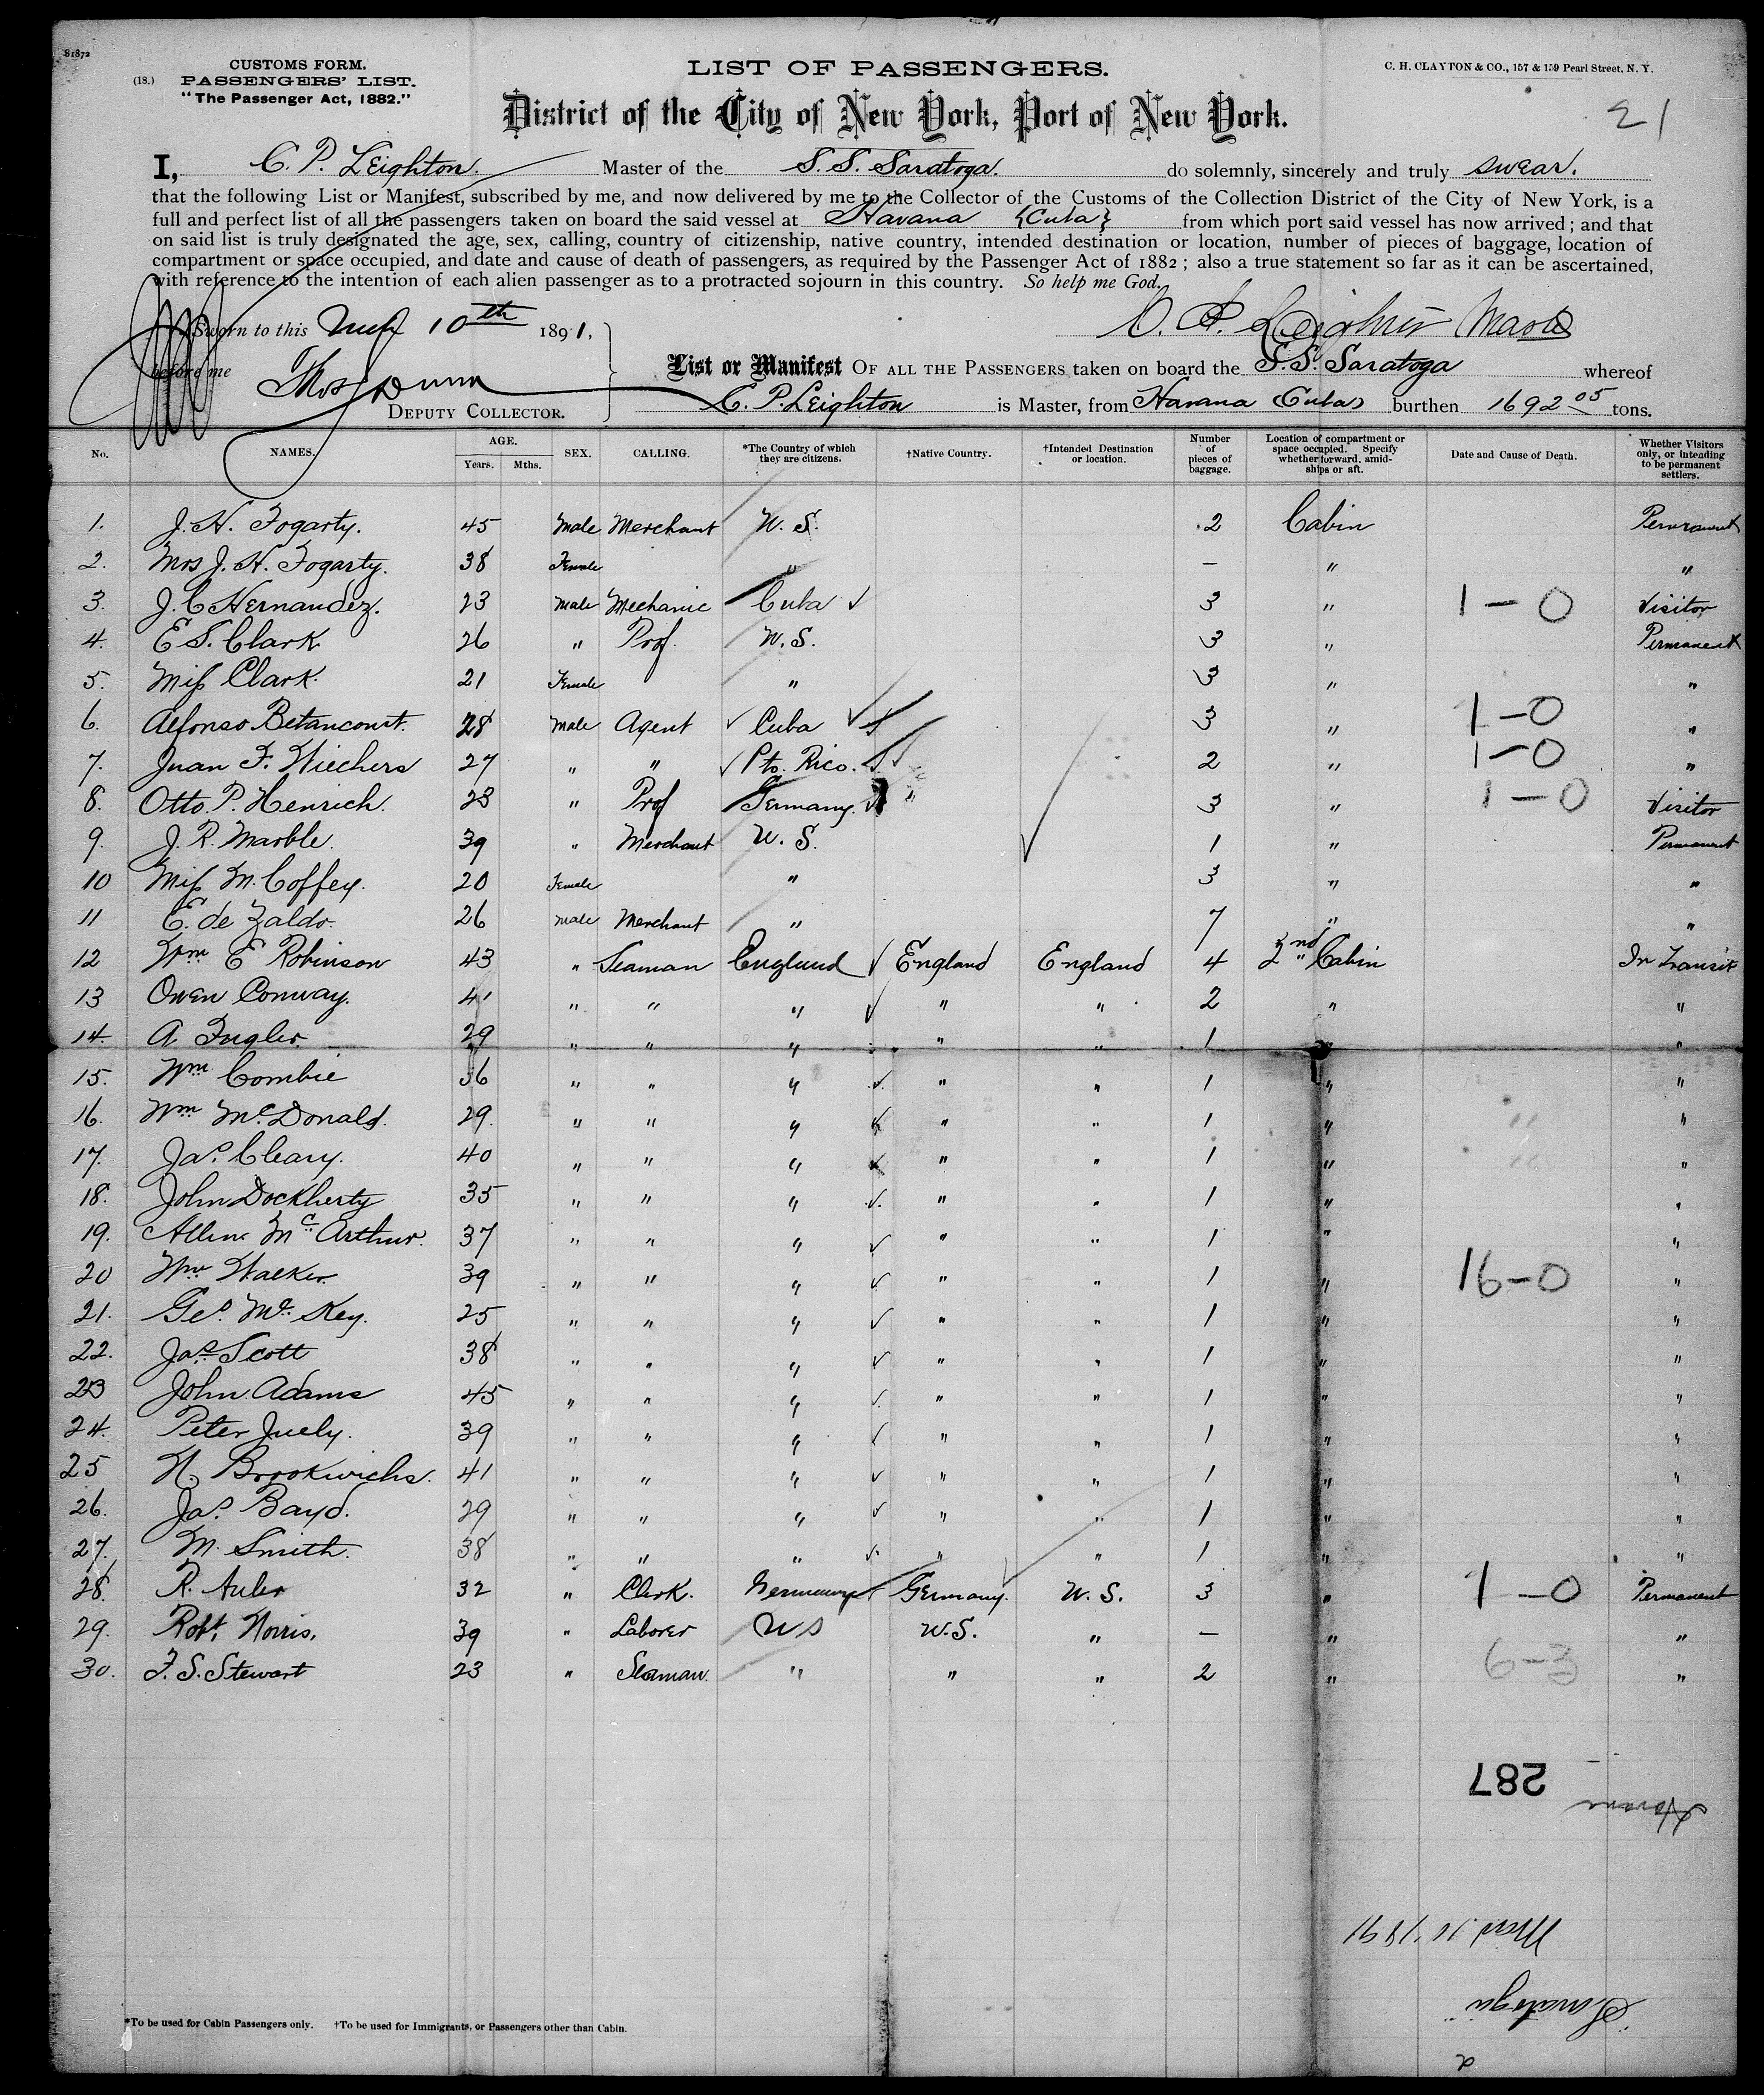 81872
CUSTOMS FORM.
(18.) PASSENGERS' LIST.
"The Passenger Act, 1882."
LIST OF PASSENGERS.
C. H. CLAYTON & CO., 157 & 159 Pearl Street, N. Y.
District of the City of New York, Port of New York.
21
I, C. P. Leighton. Master of the S. S. Saratoga. do solemnly, sincerely and truly swear.
that the following List or Manifest, subscribed by me, and now delivered by me to the Collector of the Customs of the Collection District of the City of New York, is a
full and perfect list of all the passengers taken on board the said vessel at Havana {Cuba} from which port said vessel has now arrived; and that
on said list is truly designated the age, sex, calling, country of citizenship, native country, intended destination or location, number of pieces of baggage, location of
compartment or space occupied, and date and cause of death of passengers, as required by the Passenger Act of 1882; also a true statement so far as it can be ascertained,
with reference to the intention of each alien passenger as to a protracted sojourn in this country. So help me God.
Sworn to this 10th 1891,
C. P. Leighton Master
before me Thos Dunn
DEPUTY COLLECTOR.
List or Manifest OF ALL THE PASSENGERS taken on board the S. S. Saratoga whereof
C. P. Leighton is Master, from Havana (Cuba) burthen 1692 05 tons.
No. NAMES. AGE. Years. Mths. SEX. CALLING. *The Country of which they are citizens. †Native Country. †Intended Destination or location. Number of pieces of baggage. Location of compartment or space occupied. Specify whether forward, amidships or aft. Date and Cause of Death. Whether Visitors only, or intending to be permanent settlers.
1. J. H. Fogarty. 45 Male Merchant U. S. 2 Cabin Permanent
2. Mrs J. H. Fogarty. 38 Female " — " "
3. J. C Hernandez. 23 Male Mechanic Cuba ✓ 3 " 1-0 Visitor
4. E S. Clark 26 " Prof. U. S. 3 " Permanent
5. Miss Clark. 21 Female " 3 " "
6. Alfonso Betancourt. 28 Male Agent ✓ Cuba ✓ 3 " 1-0 "
7. Juan F. Wiechers 27 " " ✓ Pto. Rico. 2 " 1-0 "
8. Otto. P. Henrich. 23 " Prof Germany. " 3 " 1-0 Visitor
9. J. R. Marble. 39 " Merchant U. S. 1 " Permanent
10 Miss M. Coffey. 20 Female " 3 " "
11 E. de Zaldo. 26 Male Merchant " 7 " "
12 Wm E Robinson 43 " Seaman England ✓ England England 4 2nd Cabin In Transit
13 Owen Conway. 41 " " " ✓ " " 2 " "
14. A. Fugler. 29 " " " " " 1 " "
15. Wm Combie 36 " " " ✓ " " 1 " "
16. Wm McDonald. 29. " " " ✓ " " 1 " "
17. Jas. Cleary. 40 " " " ✓ " " 1 " "
18. John Dockherty 35 " " " ✓ " " 1 " "
19. Allen McArthur. 37 " " " ✓ " " 1 " "
20 Wm Walker. 39 " " " ✓ " " 1 " 16-0 "
21. Geo. McKey. 25 " " " ✓ " " 1 " "
22. Jas. Scott 38 " " " ✓ " " 1 " "
23 John Adams 45 " " " ✓ " " 1 " "
24. Peter Juely. 39 " " " ✓ " " 1 " "
25 H. Brookwichs. 41 " " " ✓ " " 1 " "
26. Jas. Bayd. 29 " " " ✓ " " 1 " "
27. M. Smith. 38 " " " ✓ " " 1 " "
28. R. Auler 32 " Clerk. Germany Germany. U. S. 3 " 1-0 Permanent
29. Robt. Norris. 39 " Laborer US U. S. " — " "
30. F. S. Stewart 23 " Seaman. " " " 2 " 6-3 "
287
Havana
10 1891
Saratoga
2
*To be used for Cabin Passengers only. †To be used for Immigrants, or Passengers other than Cabin.